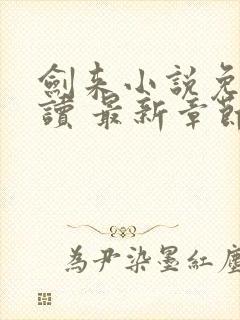 劍来小說免
讀 最新章節
為尹染墨紅塵